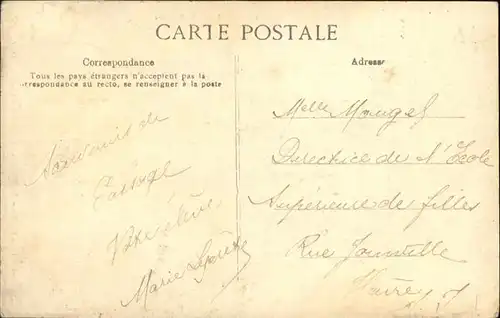 CARTE POSTALE
Correspondance
Tous les pays étrangers n'acceptent pas la
correspondance au recto, se renseigner à la poste
Souvenir de
Votre élève
Marie
Adresse
Melle Mougel
Directrice de l'Ecole
Supérieure de filles
Rue Joinville